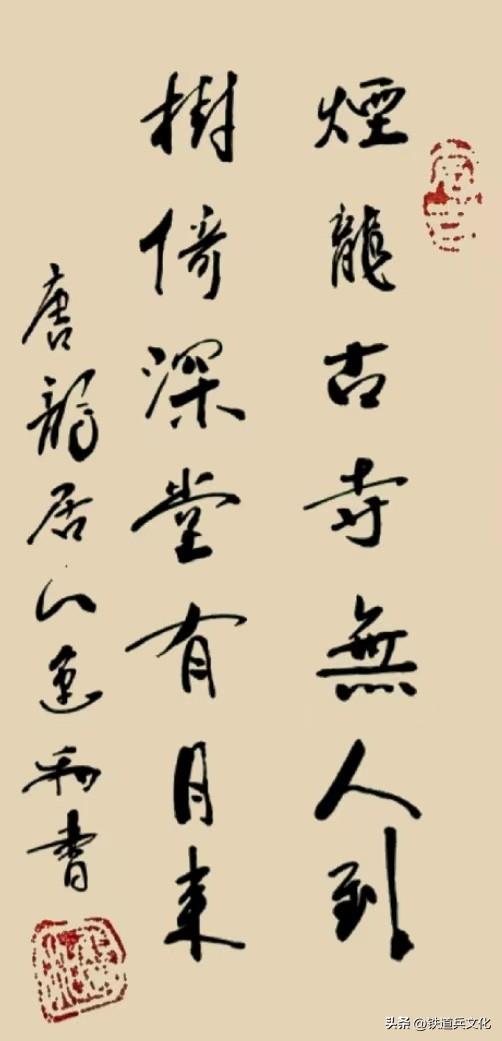 煙龍古寺無人到
樹倚深堂有月來
唐龍居
書
头条 @铁道兵文化